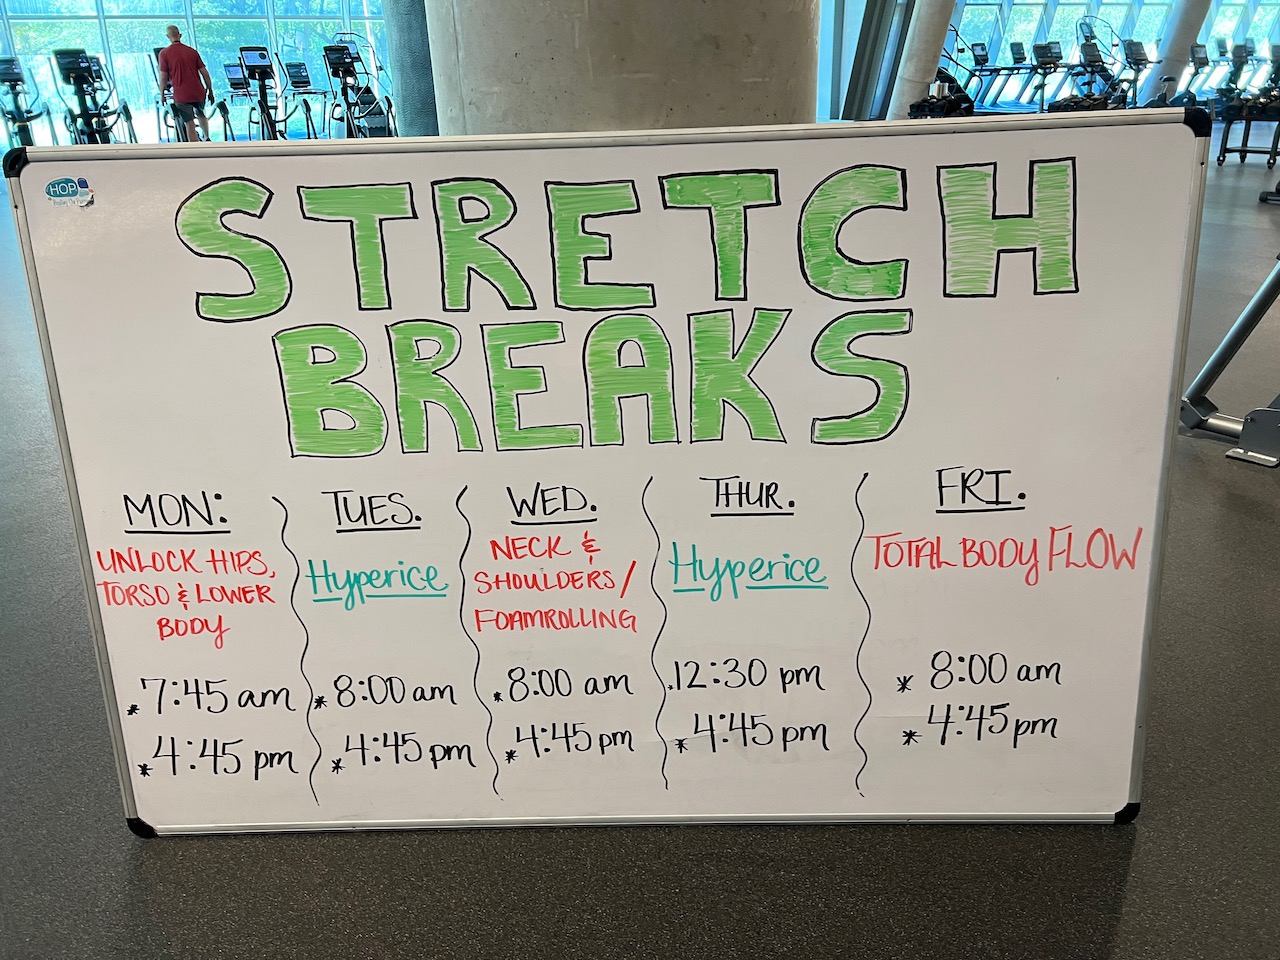 HOP
STRETCH
BREAKS
MON:
UNLOCK HIPS,
TORSO & LOWER
BODY
* 7:45 am
* 4:45 pm
TUES.
Hyperice
* 8:00 am
* 4:45 pm
WED.
NECK &
SHOULDERS/
FOAMROLLING
* 8:00 am
* 4:45 pm
THUR.
Hyperice
* 12:30 pm
* 4:45 pm
FRI.
TOTAL BODY FLOW
* 8:00 am
* 4:45 pm